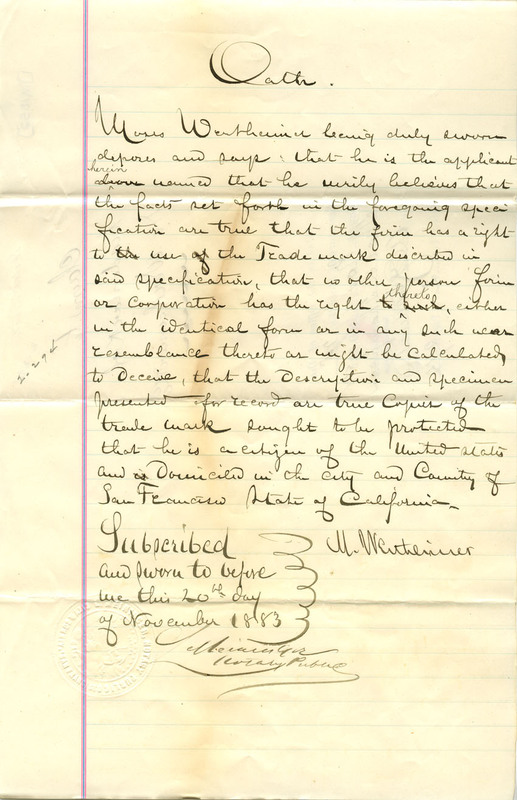 Oath.
Moses Wertheimer being duly sworn
deposes and says: that he is the applicant
herein
above named that he verily believes that
the facts set forth in the foregoing speci
fication are true that the firm has a right
to the use of the Trade mark described in
said specification, that no other person firm
or corporation has the right thereto
to such, either
in the identical form or in any such near
resemblance thereto as might be calculated
to Deceive, that the Description and specimen
presented for record are true Copies of the
trade mark sought to be protected
that he is a citizen of the United States
and is Domiciled in the city and County of
San Francisco State of California.
Subscribed M. Wertheimer
and sworn to before
me this 20th day
of November 1883
Notary Public